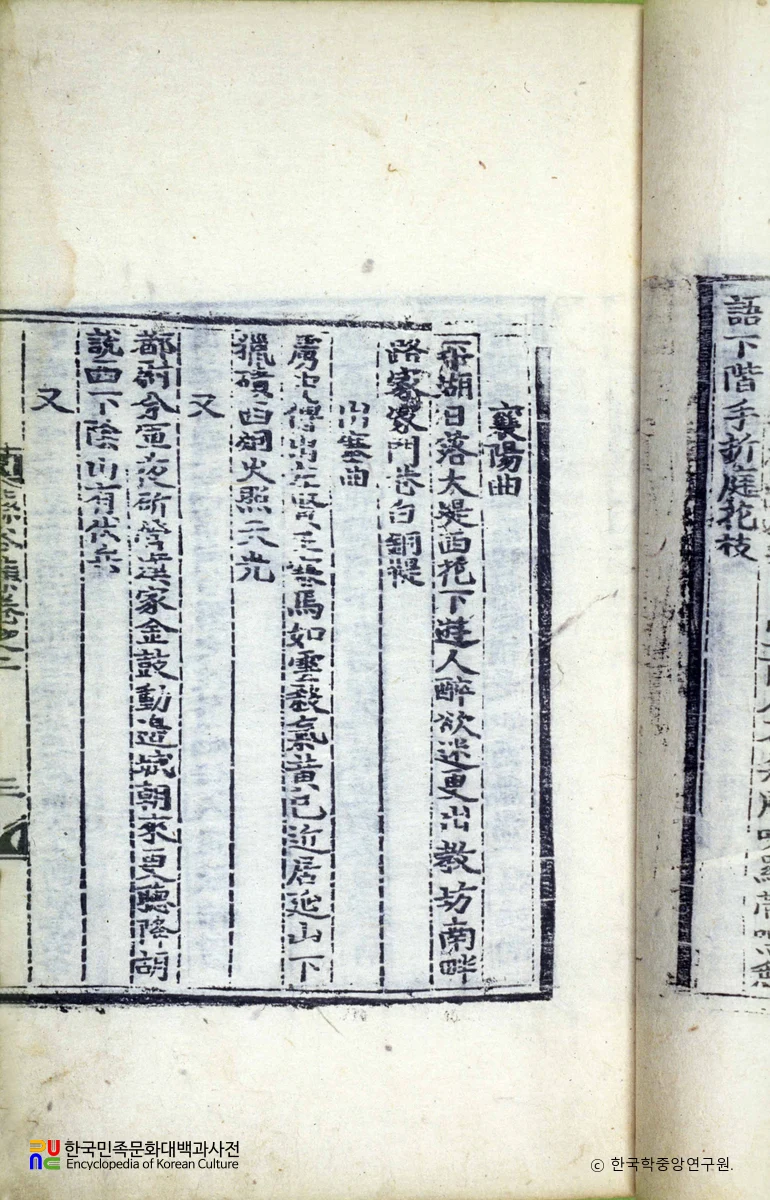 語下階手折庭花枝
襄陽曲
平湖日落大堤西花下遊人醉欲迷更出敎坊南畔
路家家門巷白銅鞮
出塞曲
虜中傳出左賢王塞馬如雲殺氣黃已近居延山下
獵磧西烟火照天光
又
都尉分軍夜斫營漢家金鼓動邊城朝來更聽降胡
說西下陰山有伏兵
又
한국민족문화대백과사전
Encyclopedia of Korean Culture
ⓒ 한국학중앙연구원.